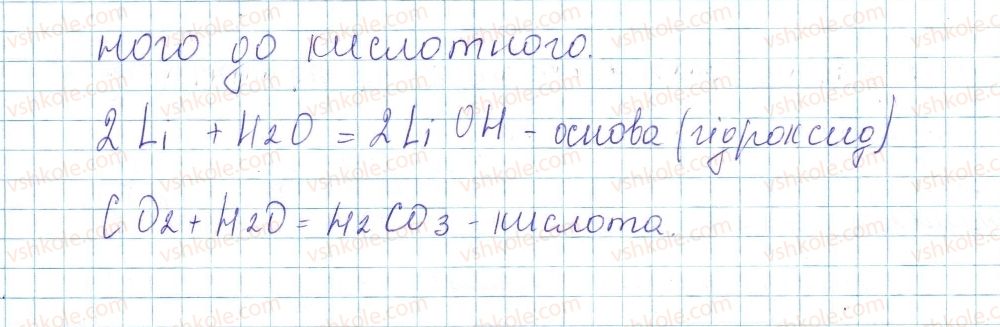 ного до кислотного.
2Li + H2O = 2LiOH - основа (гідроксид)
CO2 + H2O = H2CO3 - кислота.